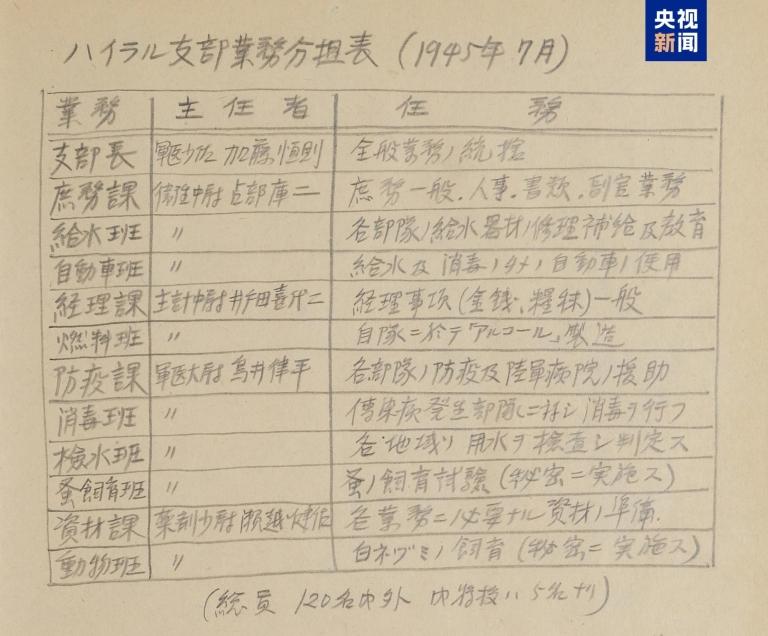 央视
新闻
ハイラル支部業務分担表 (1945年7月)
業務 主任者 任務
支部長 軍医少佐 加藤恒則 全般業務ノ統捨
庶務課 衛生中尉 占部庫二 庶務一般.人事.書類.副官業務
給水班 〃 各部隊ノ給水器材ノ修理補給及教育
自動車班 〃 給水及消毒ノタメノ自動車ノ使用
経理課 主計中尉 井田喜代二 経理事項(金銭、糧秣)一般
燃料班 〃 自隊ニ於テ「アルコール」製造
防疫課 軍医大尉 鳥井律平 各部隊ノ防疫及陸軍病院ノ援助
消毒班 〃 傳染病発生部隊ニ対シ消毒ヲ行フ
檢水班 〃 各地域ノ用水ヲ検査シ判定ス
蚤飼育班 〃 蚤ノ飼育試験(秘密ニ実施ス)
資材課 薬剤少尉 瀬越健佐 各業務ニ必要ナル資材ノ準備.
動物班 〃 白ネヅミノ飼育(秘密ニ実施ス)
(総員 120名内外 内将校ハ5名ナリ)